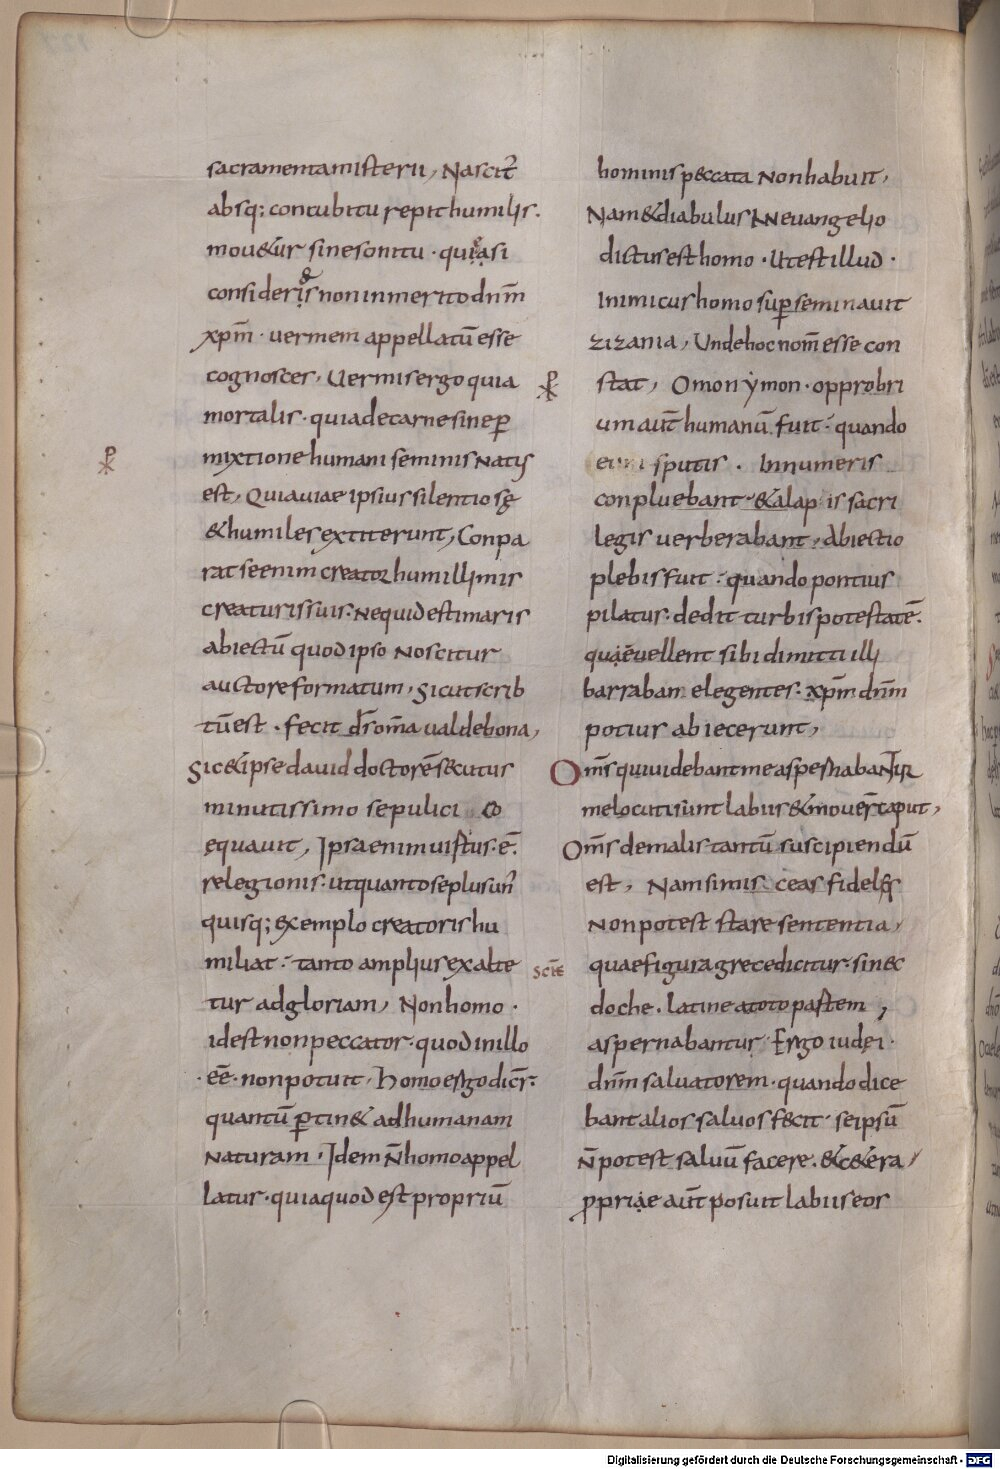 sacramenta misterii, Nascit̄
absq; concubitu repit humilis.
mou&ur sine sonitu · qu ̣ạsi
considerịs non inmerito dn̄m
xp̄m · uermem appellatū esse
cognosces, Uermis ergo quia
mortalis · quia de carne sine ꝑ
mixtione humani seminis Natus
est, Quia uiae ipsius silentiosę
& humiles extiterunt, Conpa
rat se enim creator humillimis
creaturis suis. Ne quid estimaris
abiectū quod ipso Noscitur
auctore formatum, sicut scrib
tū est · fecit dr̄ om̄a ualde bona,
Sic & ipse dauid doctorē secutus
minutissimo se pulici co
ęquauit, Ipsa enim uistus · ē·
relegionis · ut quanto se plus un̄
quisq; exemplo creatoris hu
miliat · tanto amplius exalte
tur ad gloriam, Non homo ·
id est non peccator · quod in illo
· eē · non potuit, homo ergo dicr̄ ·
quantū ꝑtin& ad humanam
Naturam · Idem n̄ homo appel
latur · quia quod est propriū
hominis peccata Non habuit,
Nam & diabulus IN euangelio
dictus est homo · Ut est illud ·
Inimicus homo suꝑseminauit
zizania, Unde hoc nom̄ esse con
stat, Omonẏmon · opprobri
um aūt humanū fuit · quando
eum sputis · Innumeris
conpluebant · & alapis sacri
legis uerberabant, Abiectio
plebis fuit · quando pontius
pilatus · dedit turbis potestatē ·
quạē uellent sibi dimitti illi
barraban elegentes · xp̄m dn̄m
potius abiecerunt,
Om̄s qui uidebant me aspernabaNtur
me locuti sunt labiis & mouer̄ caput,
Om̄s de malis tantū suscipiendū
est, Nam simis ceas fidelis
Non potest stare sententia,
scīe
quae figura grece dicitur · sinec
doche. latine a toto pastem,
aspernabantur · Ergo iudei ·
dn̄m saluatorem · quando dice
bant alios saluos fecit · se ipsū
n̄ potest saluū facere. & c&era,
ꝓpriạe aūt posuit labiis eos
Digitalisierung gefördert durch die Deutsche Forschungsgemeinschaft - DFG